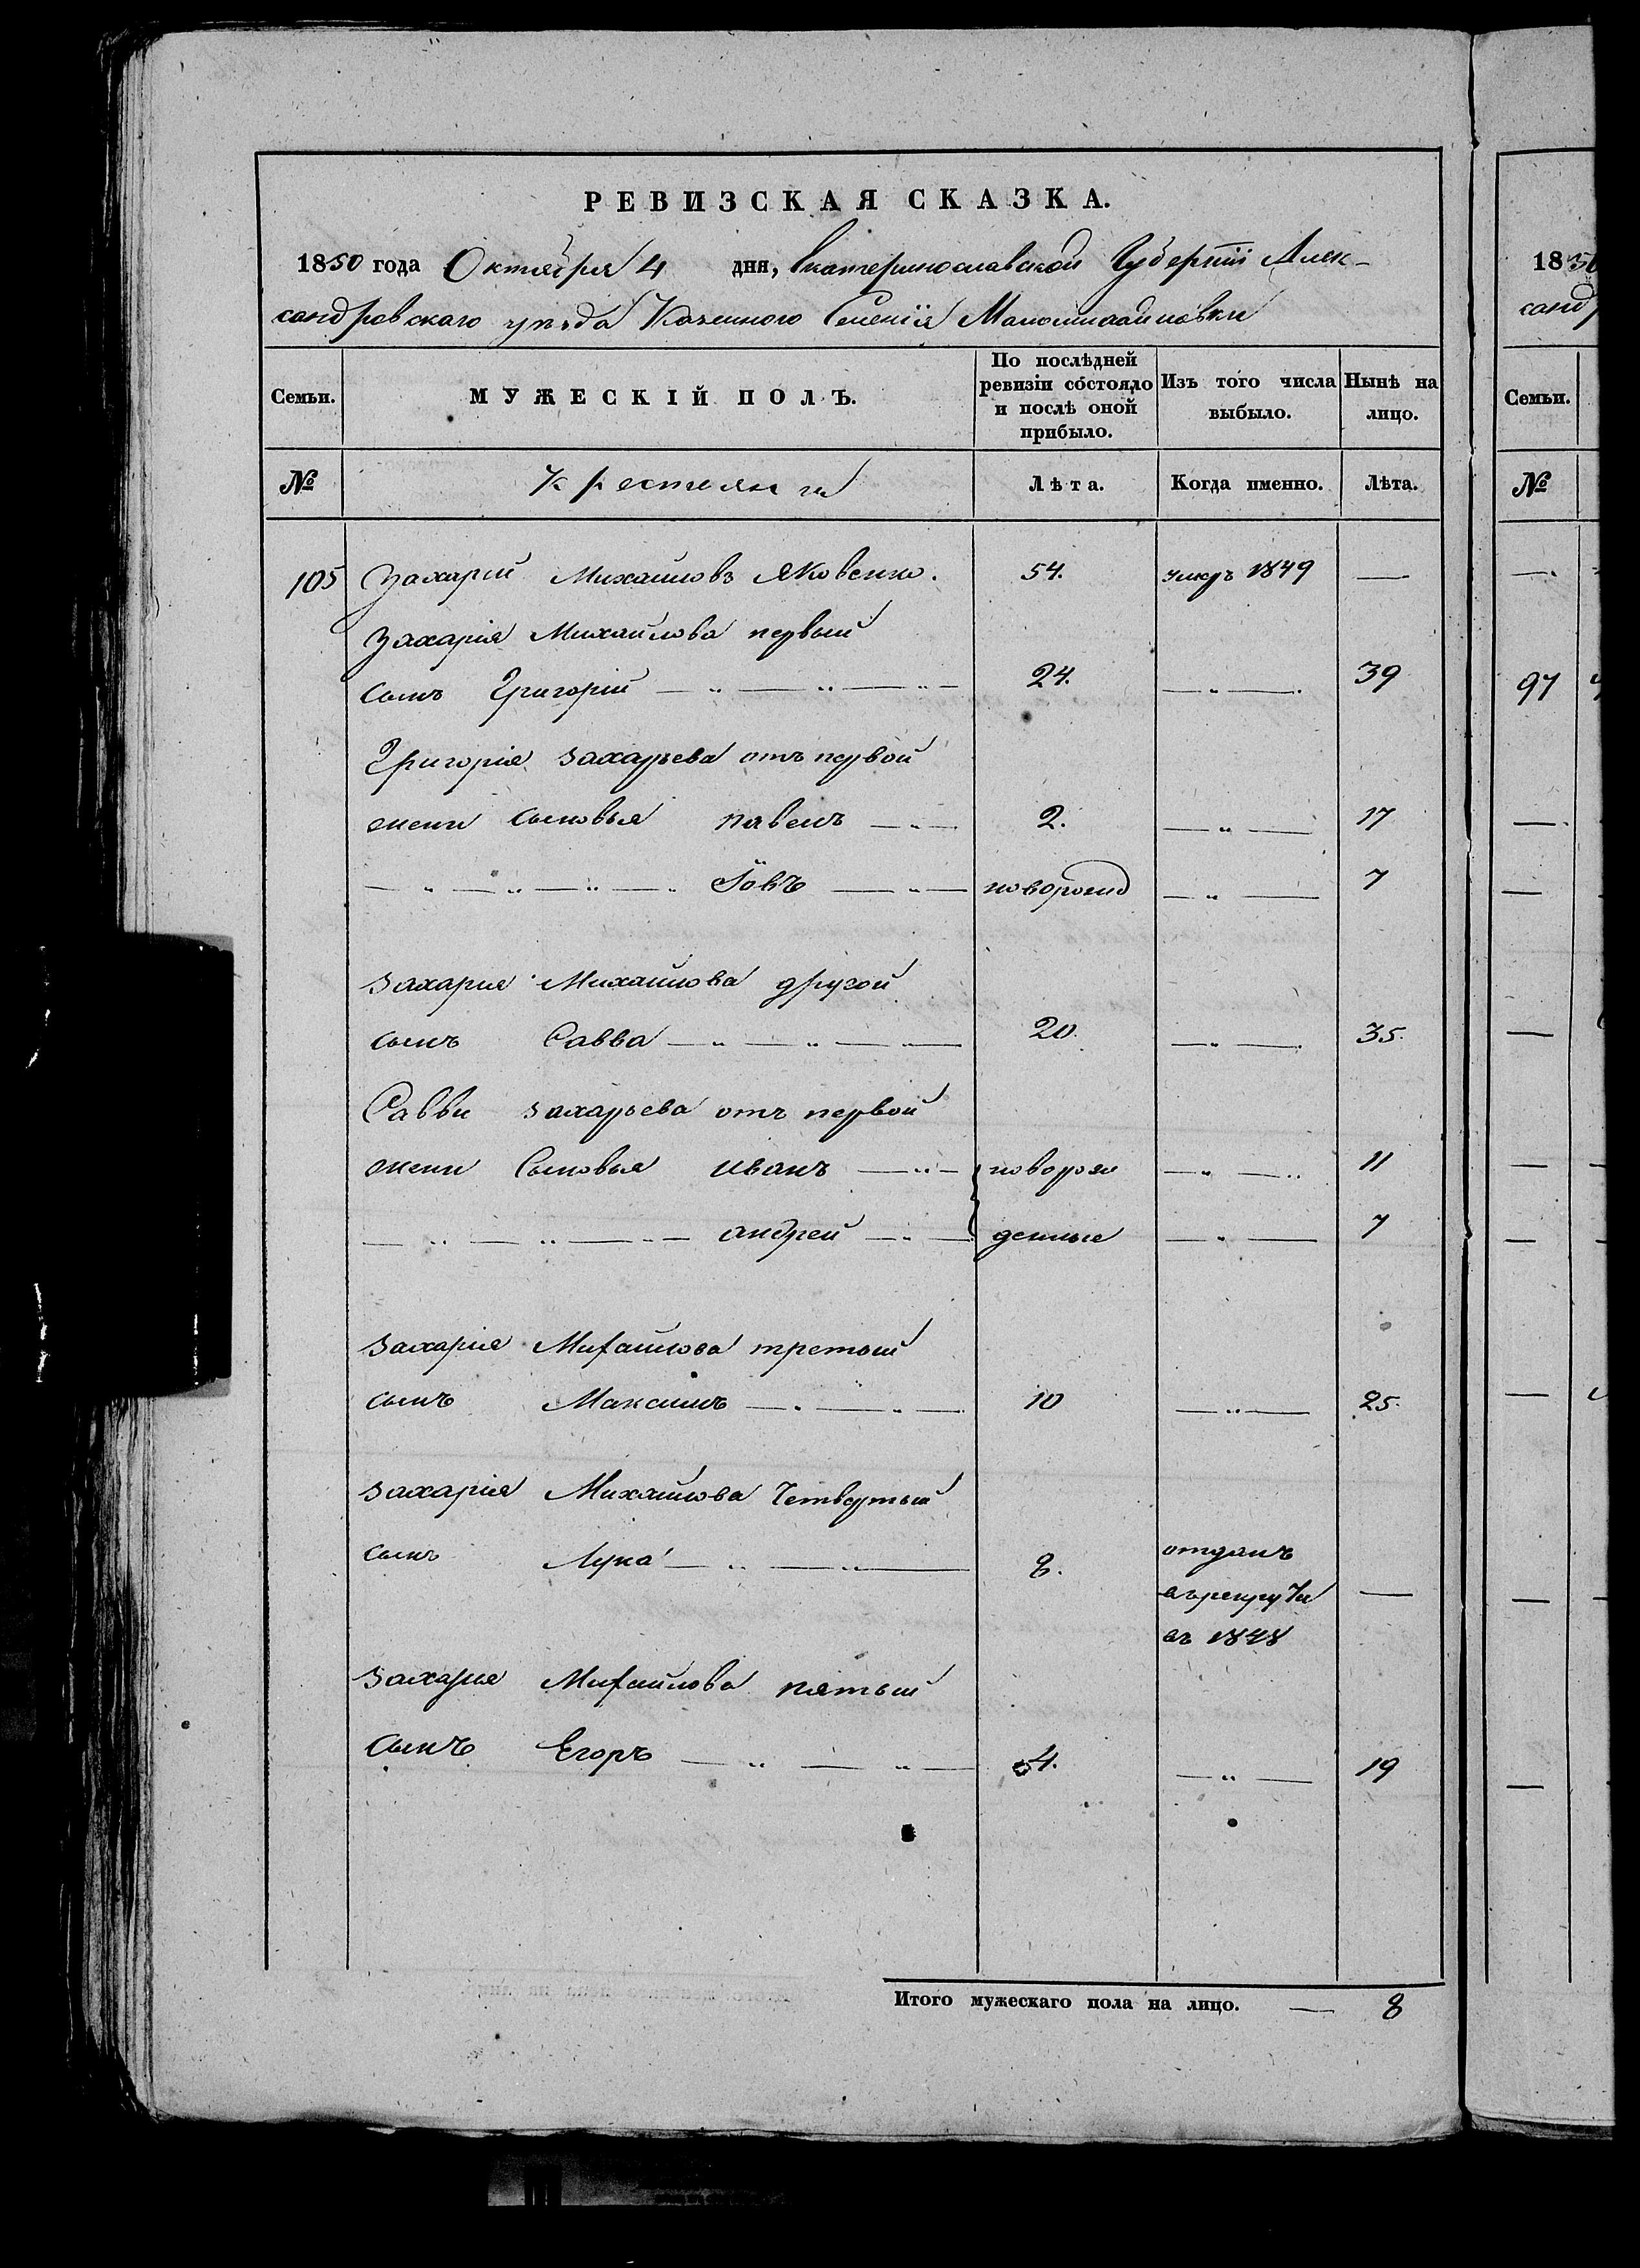 РЕВИЗСКАЯ СКАЗКА.
1850 года Октября 4 дня, Екатеринославской Губерніи Алек-
сандровскаго уѣзда Казенного Селенія Маломихайловки
Семьи. МУЖЕСКІЙ ПОЛЪ. По послѣдней ревизіи состояло и послѣ оной прибыло. Изъ того числа выбыло. Нынѣ на лицо.
№ Крестьяни Лѣта. Когда именно. Лѣта.
105 Захарій Михаиловъ Яковенко. 54. умеръ 1849 —
Захарія Михайлова первый
сынъ Григорій — „ — „ — „ — 24. — „ — 39
Григорія Захарьева отъ первой
жени сыновья Павелъ — „ — 2. — „ — 17
— „ — „ — „ — „ Іовъ — „ — новорожд — „ — 7
Захарія Михайлова другой
сынъ Савва — „ — „ — „ — 20. — „ — 35.
Савви Захарьева отъ первой
жени Сыновья Иванъ — „ — новорож — „ — „ 11
— „ — „ — „ — Андрей — „ — денные — „ — 7
Захарія Михайлова третьий
сынъ Максимъ — „ — „ — 10 — „ — 25.
Захарія Михайлова Четвертый
сынъ Лука — „ — „ — 8. отданъ
въ рекруты —
въ 1848
Захарія Михайлова пятый
Сынъ Егоръ — „ — „ — 4. — „ — 19
Итого мужескаго пола на лицо. — 8
1850
санд
Семьи.
№
97